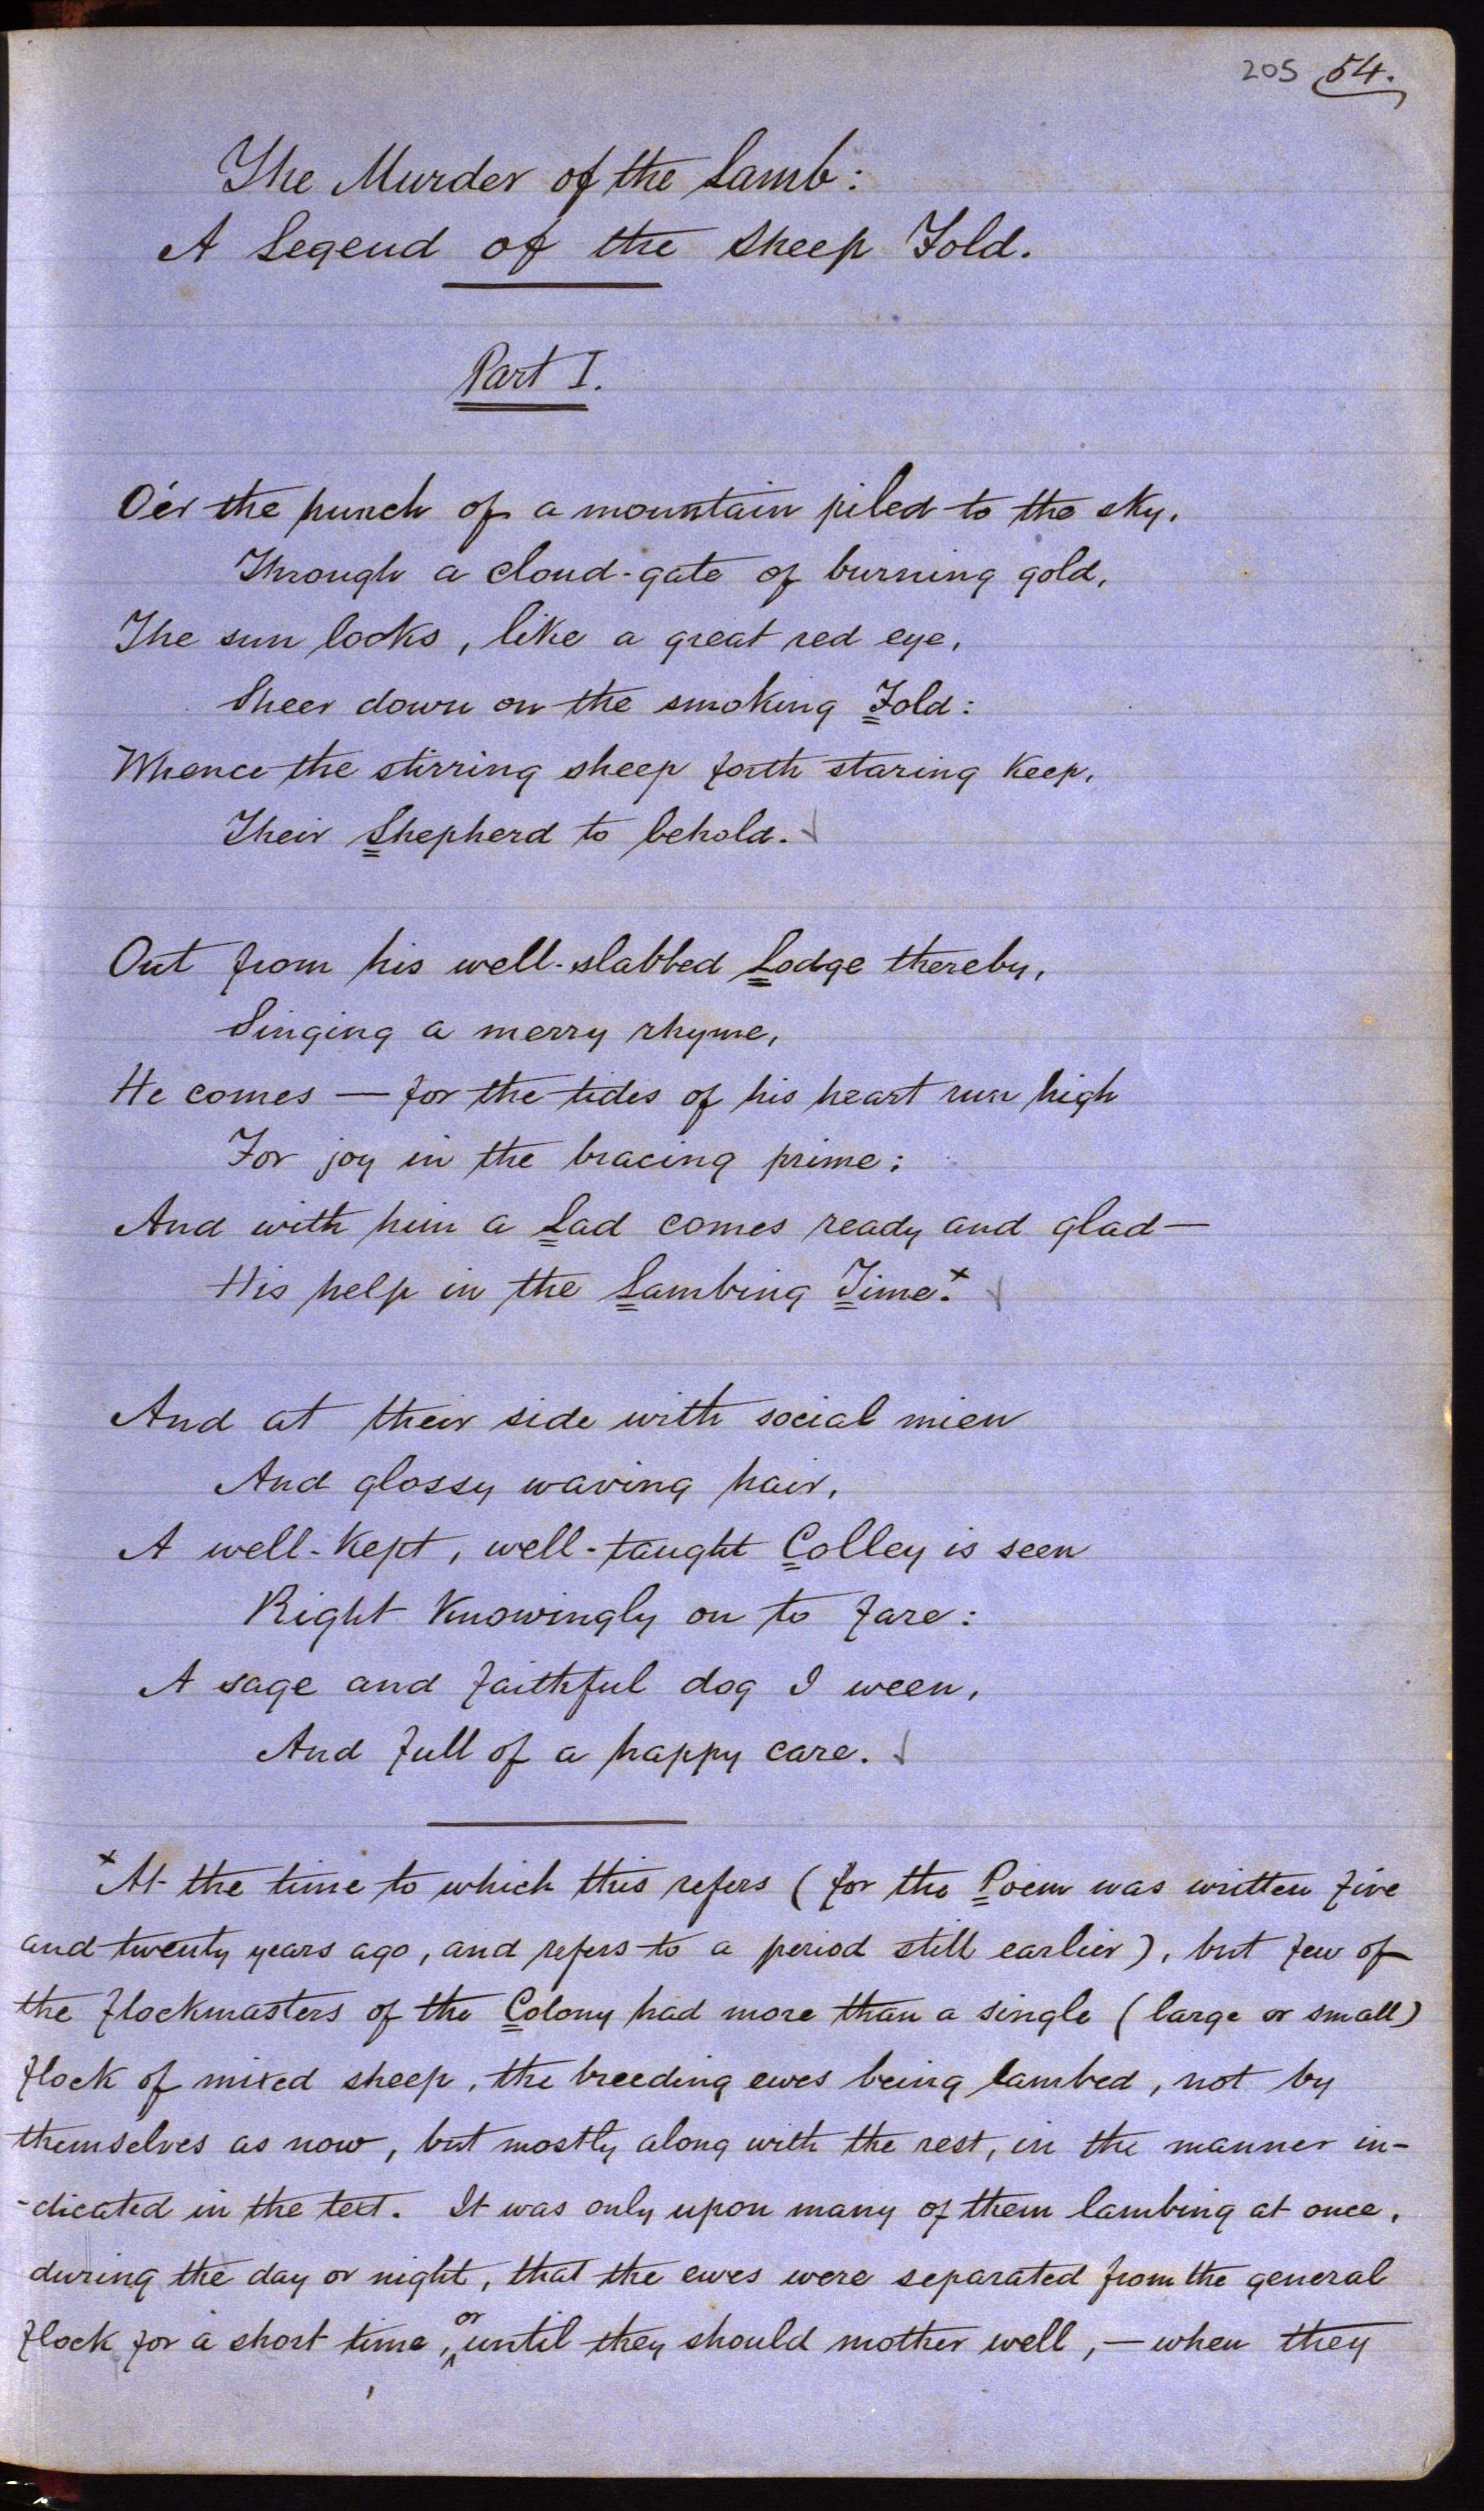 205 54.
The Murder of the Lamb:
A Legend of the Sheep Fold.
Part I.
O'er the hunch of a mountain piled to the sky,
Through a cloud-gate of burning gold,
The sun looks, like a great red eye,
Sheer down on the smoking Fold:
Whence the stirring sheep forth staring keep,
Their Shepherd to behold.
Out from his well-slabbed Lodge thereby,
Singing a merry rhyme,
He comes — for the tides of his heart run high
For joy in the bracing prime;
And with him a Lad comes ready and glad —
His help in the Lambing Time.x
And at their side with social mien
And glossy waving hair,
A well-kept, well-taught Colley is seen
Right knowingly on to fare:
A sage and faithful dog I ween,
And full of a happy care.
x At the time to which this refers (for the Poem was written five
and twenty years ago, and refers to a period still earlier), but few of
the flockmasters of the Colony had more than a single (large or small)
flock of mixed sheep, the breeding ewes being lambed, not by
themselves as now, but mostly along with the rest, in the manner in-
-dicated in the text. It was only upon many of them lambing at once,
during the day or night, that the ewes were separated from the general
flock for a short time, or until they should mother well, — when they